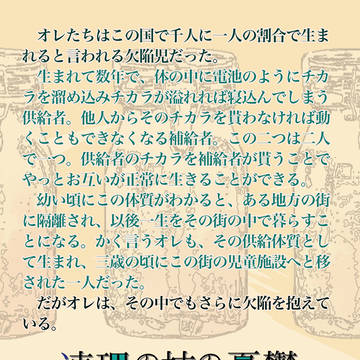 オレたちはこの国で千人に一人の割合で生ま
れると言われる欠陥児だった。
生まれて数年で、体の中に電池のようにチカ
ラを溜め込みチカラが溢れれば寝込んでしまう
供給者。他人からそのチカラを貰わなければ動
くこともできなくなる補給者。この二つは二人
で一つ。供給者のチカラを補給者が貰うことで
やっとお互いが正常に生きることができる。
幼い頃にこの体質がわかると、ある地方の街
に隔離され、以後一生をその街の中で暮らすこ
とになる。かく言うオレも、その供給体質とし
て生まれ、三歳の頃にこの街の児童施設へと移
された一人だった。
だがオレは、その中でもさらに欠陥を抱えて
いる。
連理の枝の憂鬱